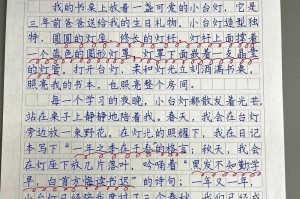 我的书桌上放着一盏可爱的小台灯。它是
三年前爸爸送给我的生日礼物。小台灯造型独
特，圆圆的灯座，修长的灯杆，灯杆上面撑着
一个蓝色的圆形灯罩，灯罩下面藏着一支晶莹
的灯管。打开台灯，柔和灯光立刻洒满书桌，
照亮我的书本，也照亮整个房间。
每一个学习的夜晚，小台灯都散发着光芒，
站在桌子上静静地陪着我。春天，我会在台灯
旁边放一束野花。在灯光的照耀下，我在日记
本写下“一年之季在于春的格言；秋天，我会
在灯座下放几片落叶，吟诵着“黑发不知勤学
早，白首方悔读书迟”的诗句；一年又一年，